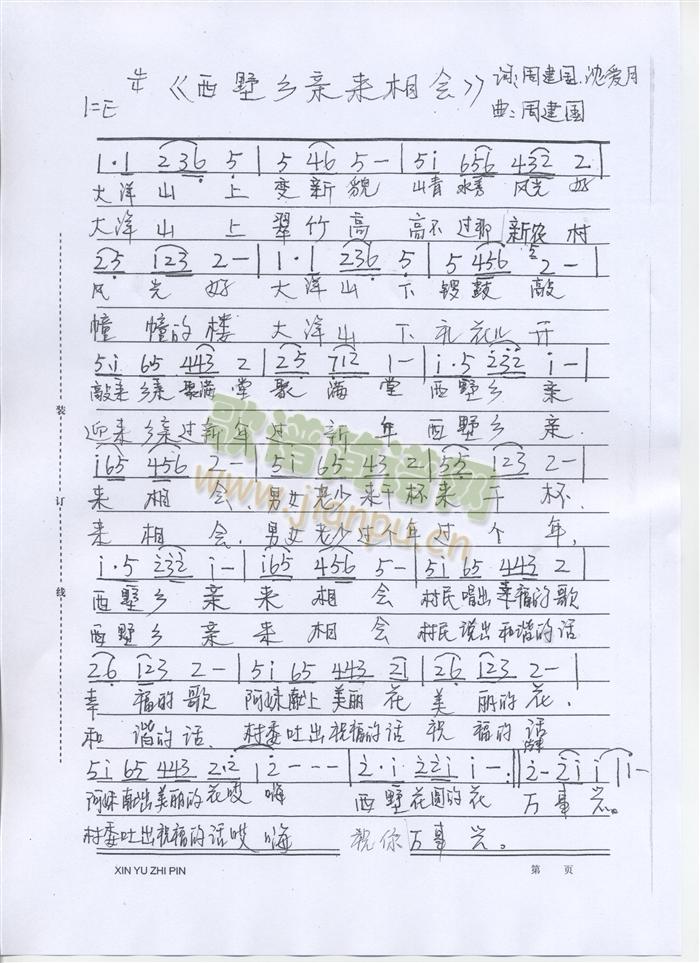 《西墅乡亲来相会》 词:周建国.沈爱月
1=E 曲:周建国
1·1 236 5 | 5 46 5 — | 5i 656 432 2 |
大洋山上变新貌 山青水秀风光好
大洋山上翠竹高 高不过那新农村
25 123 2 — | 1·1 236 5 | 5 456 2 — |
风光好 大洋山下锣鼓敲
幢幢的楼 大洋山下礼花儿开
5i 65 443 2 | 25 712 1 — | i·5 232 i — |
敲来乡亲聚满堂聚满堂 西墅乡亲
迎来乡亲过新年过新年 西墅乡亲.
i65 456 2 — | 5i 65 43 2 | 25 123 2 — |
来相会.男女老少来干杯来干杯.
来相会.男女老少过个年过个年,
i·5 232 i — | i65 456 5 — | 5i 65 443 2 |
西墅乡亲来相会 村民唱出幸福的歌
西墅乡亲来相会 村民说出和谐的话
26 123 2 — | 5i 65 443 21 | 26 123 2 — |
幸福的歌 阿妹献上美丽花美丽的花.
和谐的话. 村委吐出祝福的话祝福的话
5i 65 443 2·2 | 2 — — — | 2·i 22i i — :|| 2— 2i i | i — |
阿妹献出美丽的花哎嗨 西墅花园的花 万事兴。
村委吐出祝福的话哎嗨 祝你万事兴。
装
订
线
歌谱简谱网
www.jianpu.cn
XIN YU ZHI PIN 第 页